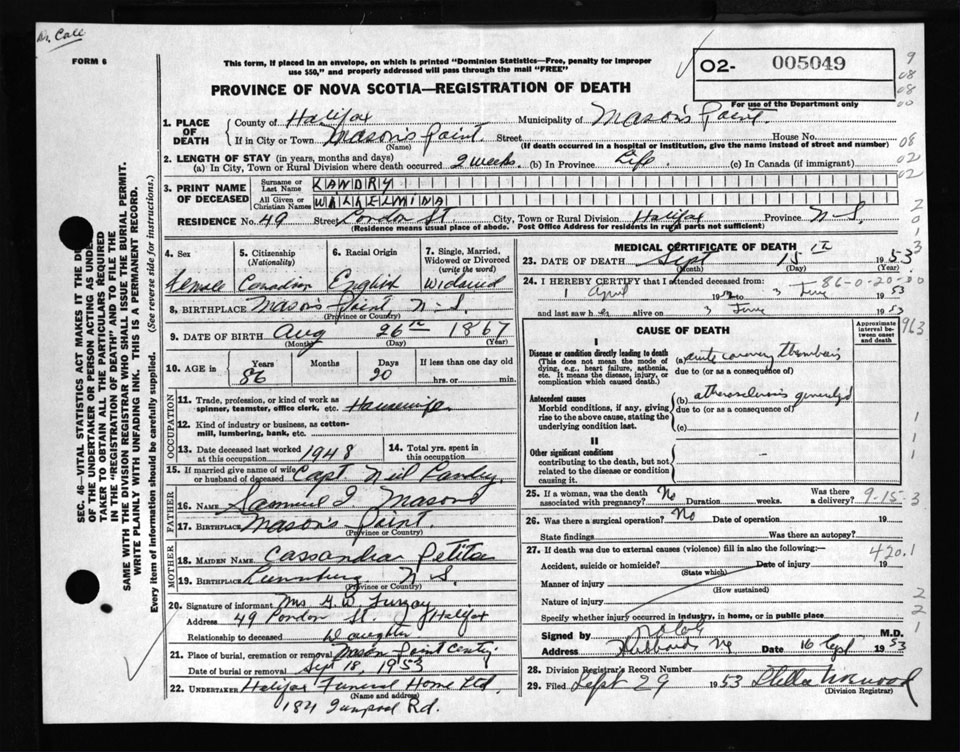 Dr. Cole
FORM 6
This form, if placed in an envelope, on which is printed "Dominion Statistics—Free, penalty for improper
use $50," and properly addressed will pass through the mail "FREE"
PROVINCE OF NOVA SCOTIA—REGISTRATION OF DEATH
O2- 005049
For use of the Department only
1. PLACE OF DEATH County of Halifax Municipality of Mason's Point.
If in City or Town Mason's Point. Street House No.
(Name) (If death occurred in a hospital or institution, give the name instead of street and number)
2. LENGTH OF STAY (in years, months and days)
(a) In City, Town or Rural Division where death occurred 2 weeks. (b) In Province Life (c) In Canada (if immigrant)
3. PRINT NAME OF DECEASED
Surname or Last Name
All Given or Christian Names
RESIDENCE No. 49 Street London St. City, Town or Rural Division Halifax Province N-S.
(Residence means usual place of abode. Post Office Address for residents in rural parts not sufficient)
4. Sex Female
5. Citizenship (Nationality) Canadian
6. Racial Origin English
7. Single, Married, Widowed or Divorced (write the word) Widowed
8. BIRTHPLACE Mason's Point, N-S.
(Province or Country)
9. DATE OF BIRTH Aug 26th 1867
(Month) (Day) (Year)
10. AGE in Years 86 Months Days 20 If less than one day old
hrs. or min.
OCCUPATION
11. Trade, profession, or kind of work as
spinner, teamster, office clerk, etc. Housewife
12. Kind of industry or business, as cotton-
mill, lumbering, bank, etc.
13. Date deceased last worked at this occupation 1948
14. Total yrs. spent in this occupation
15. If married give name of wife
or husband of deceased Capt. Neil
FATHER
16. NAME Samuel Mason
17. BIRTHPLACE Mason's Point.
MOTHER
18. MAIDEN NAME Cassandra
19. BIRTHPLACE Lunenburg N-S.
(Province or Country)
20. Signature of informant Mrs. G. W.
Address 49 London St. Halifax
Relationship to deceased Daughter
21. Place of burial, cremation or removal Mason Point
Date of burial or removal Sept 18, 1953
22. UNDERTAKER Halifax Funeral Home Ltd
(Name and address)
Rd.
MEDICAL CERTIFICATE OF DEATH
23. DATE OF DEATH Sept 15th 1953
(Month) (Day) (Year)
24. I HEREBY CERTIFY that I attended deceased from:
1 April 19 to 3 June 1953
and last saw h alive on 3 June 1953
CAUSE OF DEATH
Approximate interval between onset and death
I
Disease or condition directly leading to death
(This does not mean the mode of
dying, e.g., heart failure, asthenia,
etc. It means the disease, injury, or
complication which caused death.)
(a) acute coronary thrombosis
due to (or as a consequence of)
Antecedent causes
Morbid conditions, if any, giving
rise to the above cause, stating the
underlying condition last.
(b)
due to (or as a consequence of)
(c)
II
Other significant conditions
contributing to the death, but not
related to the disease or condition
causing it.
25. If a woman, was the death associated with pregnancy? No Duration weeks. Was there a delivery?
9-15-3
26. Was there a surgical operation? No Date of operation 19
State findings Was there an autopsy?
27. If death was due to external causes (violence) fill in also the following:—
420.1
Accident, suicide or homicide? Date of injury 19
(State which)
Manner of injury
(How sustained)
Nature of injury
Specify whether injury occurred in industry, in home, or in public place
Signed by M.D.
Address Hubbards NS Date 16 Sept 1953
28. Division Registrar's Record Number
29. Filed Sept 29 1953
(Division Registrar)
SEC. 46—VITAL STATISTICS ACT MAKES IT THE
OF THE UNDERTAKER OR PERSON ACTING AS
TAKER TO OBTAIN ALL THE PARTICULARS REQUIRED
IN THE "REGISTRATION OF DEATH" AND TO FILE THE
SAME WITH THE DIVISION REGISTRAR WHO SHALL ISSUE THE BURIAL PERMIT.
WRITE PLAINLY WITH UNFADING INK. THIS IS A PERMANENT RECORD.
Every item of information should be carefully supplied. (See reverse side for instructions.)